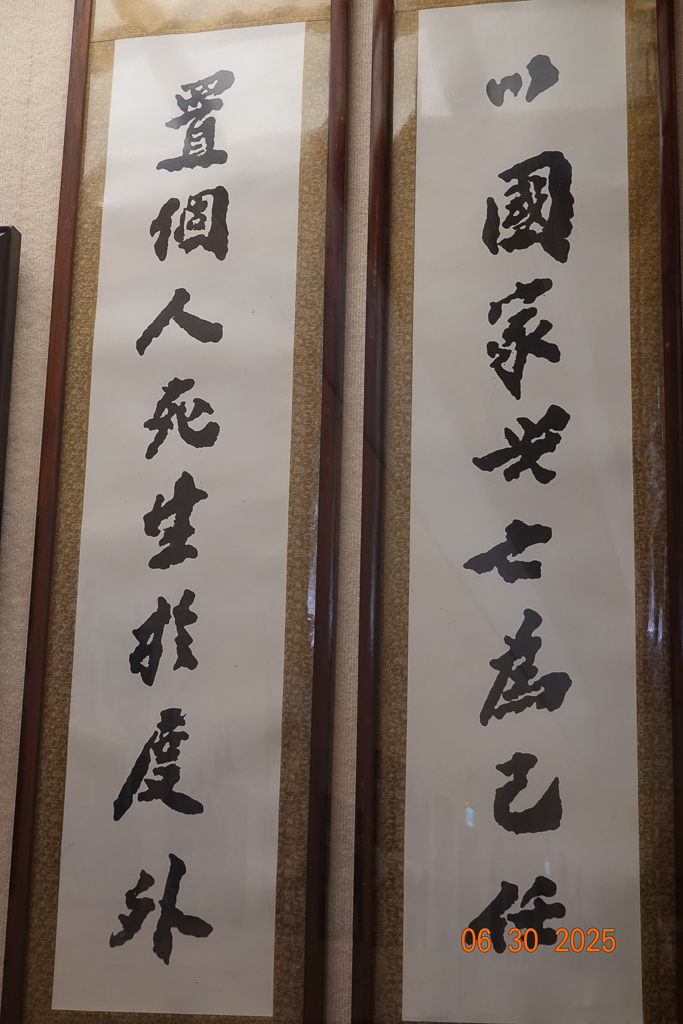 以國家兴亡為己任
置個人死生於度外
06 30 2025